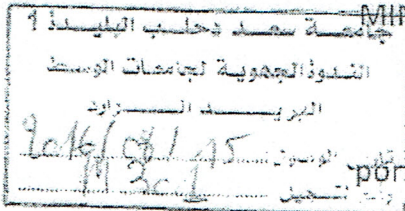 MII
جامعة سعد دحلب البليدة 1
الندوة الجهوية لجامعات الوسط
البريد الوارد
تاريخ الوصول: 2016/08/15
por
رقم التسجيل